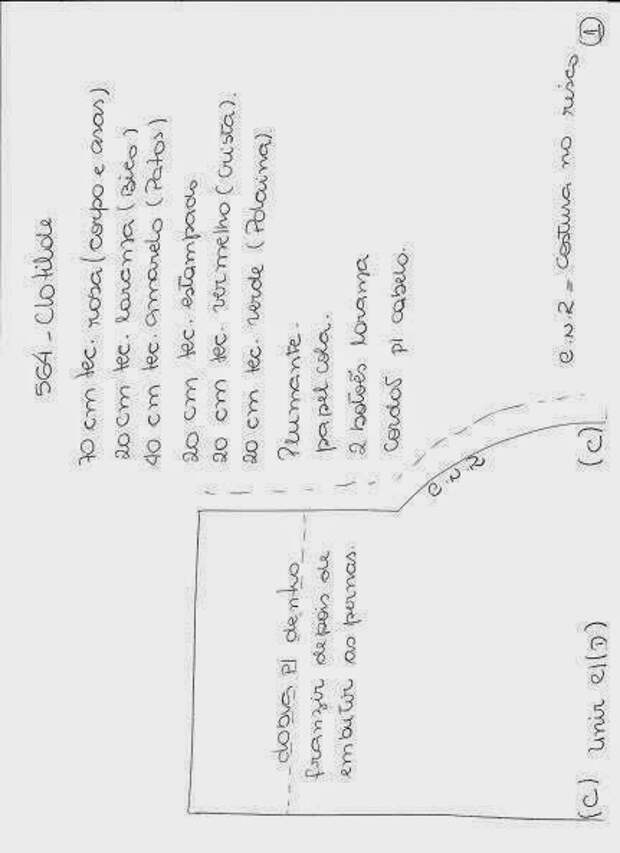 564 - Clotilde
70 cm tec. rosa (corpo e asas)
20 cm tec. laranja (Bico)
40 cm tec. amarelo (Patas)
20 cm tec. estampado
20 cm tec. vermelho (Crista).
20 cm tec. verde (Polaina)
Plumante.
papel cola.
2 botões laranja
cordot p/ cabelo.
C.N.R = Costura no risco
1
C.N.R
(C)
dobra p/ dentro
franzir depois de
embutir as pernas.
(C) unir c/(D)